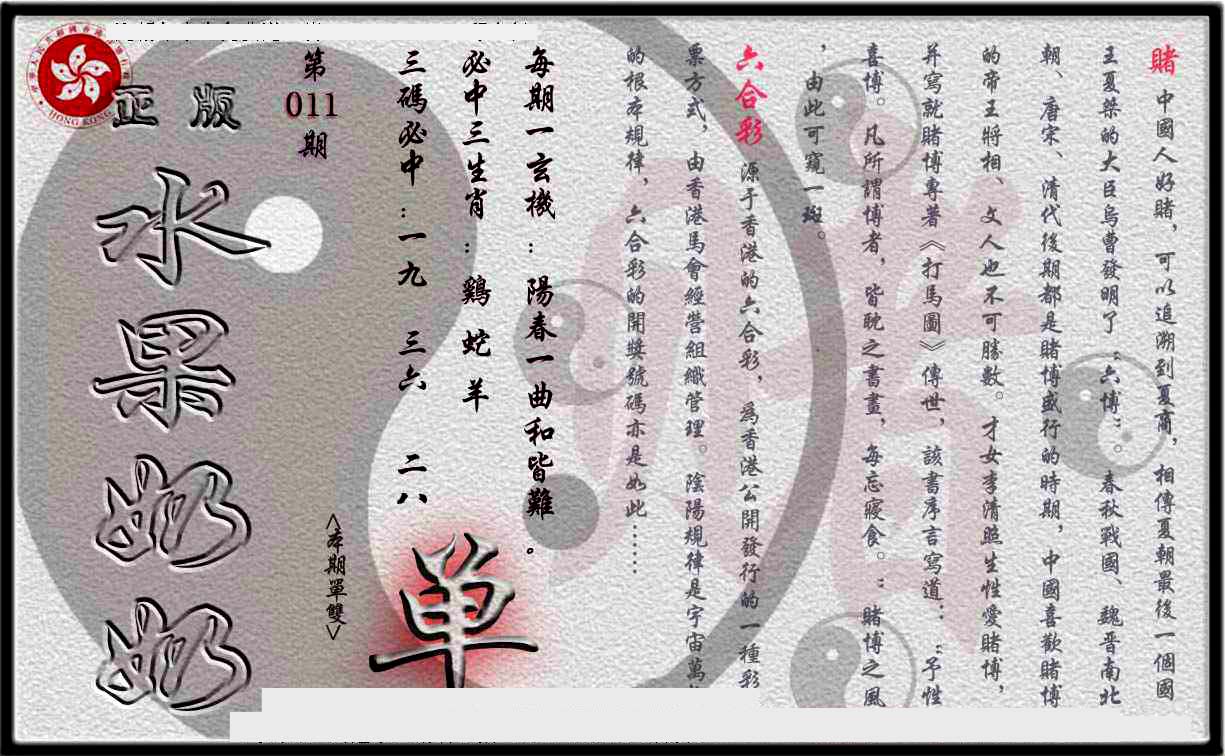 賭 中國人好賭，可以追溯到夏商，相傳夏朝最後一個國
王夏桀的大臣烏曹發明了“六博”。春秋戰國、魏晋南北
朝、唐宋、清代後期都是賭博盛行的時期，中國喜歡賭博
的帝王將相、文人也不可勝數。才女李清照生性愛賭博，
并寫就賭博專著《打馬圖》傳世，該書序言寫道：“予性
喜博。凡所謂博者，皆耽之書畫，每忘寢食。”賭博之風
，由此可窺一斑。
六合彩 源于香港的六合彩，爲香港公開發行的一種彩
票方式，由香港馬會經營組織管理。陰陽規律是宇宙萬
的根本規律，六合彩的開獎號碼亦是如此……
每期一玄機：陽春一曲和皆難。
必中三生肖：鷄 蛇 羊
三碼必中：一九 三六 二八
单
<本期單雙>
第
011
期
正版
水果奶奶
HONG KONG